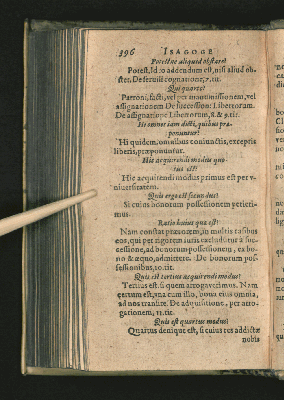 396 ISAGOGE
Potestne aliquid obstare?
Potest. Ideo addendum est, nisi aliud ob-
stet. De seruili cognatione,
Qui quarto?
Patroni, facti, vel per manumissionem, vel
assignationem De succession: Libertorum.
De assignatione Libertorum, 8. & 9. tit.
Hi omnes iam dicti, quibus præ-
ponuntur?
Hi quidem, omnibus coniunctis, exceptis
liberis, præponuntur.
Hic acquirendi modus quo-
tus est?
Hic acquirendi modus primus est per v-
niuersitatem.
Quis ergo est secundus?
Si cuius bonorum possessionem petieri-
mus.
Ratio huius quæ est?
Nam constat prætorem, in multis casibus
eos, qui per rigorem iuris excluduntur à suc-
cessione, ad bonorum possessionem, ex bo-
no & æquo, admittere. De bonorum pos-
sessionibus, 10. tit.
Quis est tertius acquirendi modus?
Tertius est, si quem arrogauerimus. Nam
certum est, vna cum illo, bona eius omnia,
ad nos transire. De adquisitione, per arro-
gationem, 11. tit.
Quis est quartus modus?
Quartus denique est, si cuius res addictæ
nobis